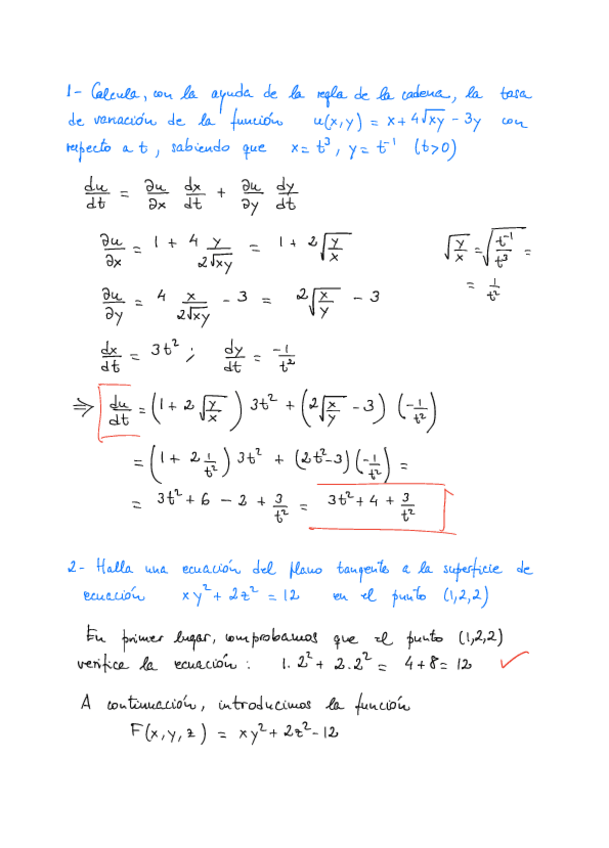 1- Calcula, con la ayuda de la regla de la cadena, la tasa
de variación de la función u(x,y) = x + 4√xy - 3y con
respecto a t, sabiendo que x = t³, y = t⁻¹ (t>0)
du/dt = ∂u/∂x dx/dt + ∂u/∂y dy/dt
∂u/∂x = 1 + 4 y/2√xy = 1 + 2√(y/x)
√(y/x) = √(t⁻¹/t³) =
= 1/t²
∂u/∂y = 4 x/2√xy - 3 = 2√(x/y) - 3
dx/dt = 3t² ; dy/dt = -1/t²
⇒ du/dt = (1 + 2√(y/x)) 3t² + (2√(x/y) - 3) (-1/t²)
= (1 + 2 1/t²) 3t² + (2t²-3)(-1/t²) =
= 3t² + 6 - 2 + 3/t² = 3t² + 4 + 3/t²
2- Halla una ecuación del plano tangente a la superficie de
ecuación xy² + 2z² = 12 en el punto (1,2,2)
En primer lugar, comprobamos que el punto (1,2,2)
verifica la ecuación : 1.2² + 2.2² = 4+8 = 12 ✓
A continuación, introducimos la función
F(x,y,z) = xy² + 2z² - 12